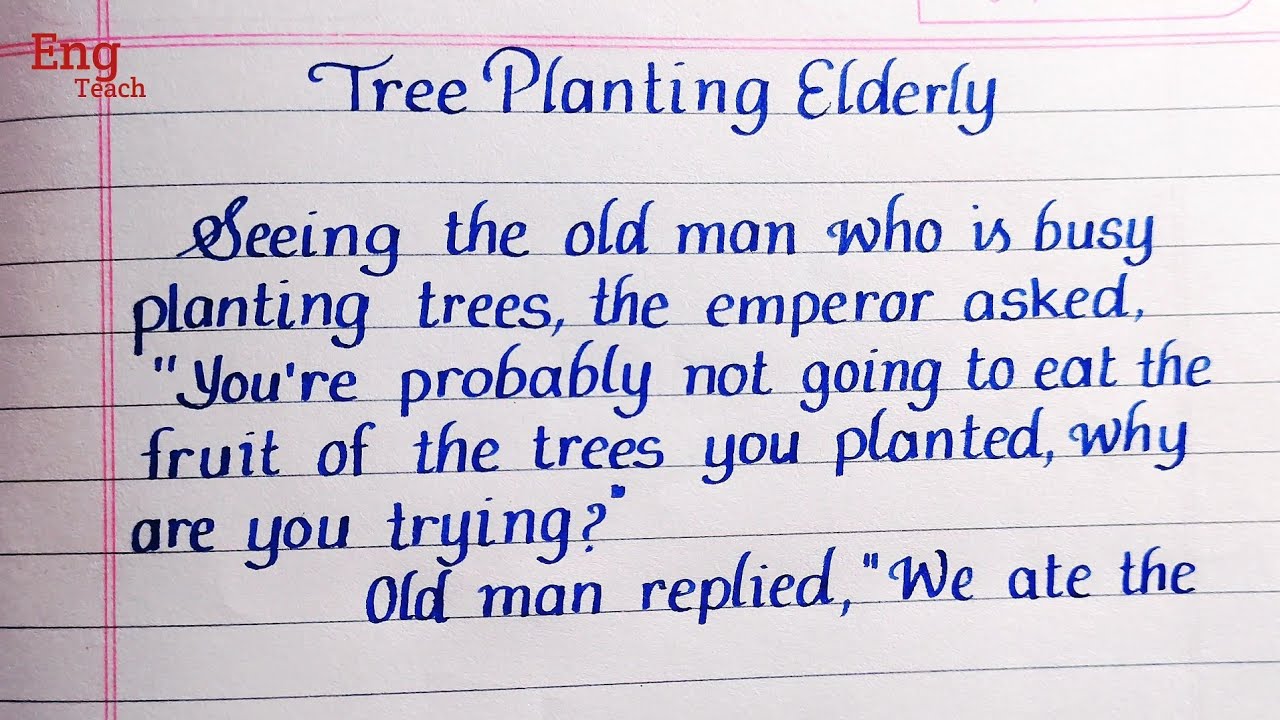 Eng
Teach
Tree Planting Elderly
Seeing the old man who is busy
planting trees, the emperor asked,
"You're probably not going to eat the
fruit of the trees you planted, why
are you trying?"
Old man replied, "We ate the